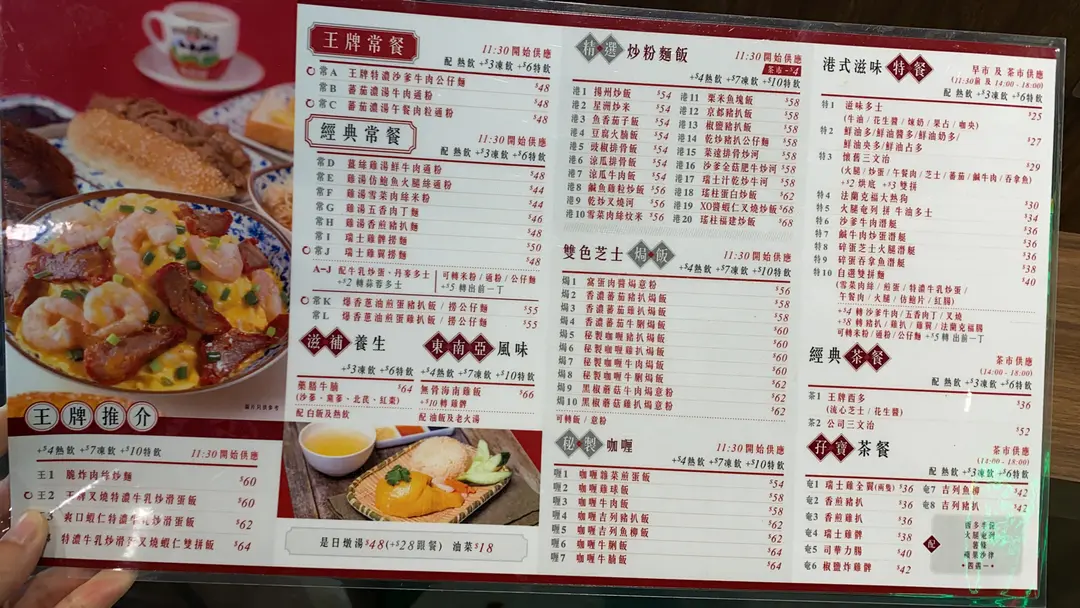 王牌常餐
11:30開始供應
配 熱飲 +$3凍飲 +$6特飲
常A 王牌特濃沙爹牛肉公仔麵 $48
常B 蕃茄濃湯牛肉通粉 $48
常C 蕃茄濃湯午餐肉粒通粉 $48
經典常餐
11:30開始供應
配 熱飲 +$3凍飲 +$6特飲
常D 雞絲雞湯鮮牛肉通粉 $48
常E 雞湯仿鮑魚火腿絲通粉 $44
常F 雞湯雪菜肉絲米粉 $44
常G 雞湯五香肉丁麵 $46
常H 雞湯香煎豬扒麵 $48
常I 瑞士雞翼撈麵 $50
常J 瑞士雞髀撈麵 $48
A-J 配牛乳炒蛋、丹麥多士
+$2 轉蒜蓉多士
可轉米粉/通粉/公仔麵
+$5 轉出前一丁
常K 爆香蔥油煎蛋豬扒飯/撈公仔麵 $55
常L 爆香蔥油煎蛋雞扒飯/撈公仔麵 $55
滋補養生
+$3凍飲 +$6特飲
藥膳牛腩 $64
(沙蔘、棗蔘、北芪、紅棗)
配 白飯及熱飲
東南亞風味
+$4熱飲 +$7凍飲 +$10特飲
無骨海南雞飯 $66
+$10 轉雞髀
配 油飯及老火湯
是日燉湯$48(+$28跟餐) 油菜$18
圖片只供參考
王牌推介
+$4熱飲 +$7凍飲 +$10特飲
11:30開始供應
王1 脆炸肉絲炒麵 $60
王2 王牌叉燒特濃牛乳炒滑蛋飯 $60
爽口蝦仁特濃牛乳炒滑蛋飯 $62
特濃牛乳炒滑蛋叉燒蝦仁雙拼飯 $64
精選炒粉麵飯
11:30開始供應
茶市 -$4
+$4熱飲 +$7凍飲 +$10特飲
港1 揚州炒飯 $54
港2 星洲炒米 $54
港3 魚香茄子飯 $54
港4 豆腐火腩飯 $54
港5 豉椒排骨飯 $54
港6 涼瓜排骨飯 $54
港7 涼瓜牛肉飯 $54
港8 鹹魚雞粒炒飯 $56
港9 乾炒叉燒河 $56
港10 雪菜肉絲炆米 $56
港11 粟米魚塊飯 $58
港12 京都豬扒飯 $58
港13 椒鹽豬扒飯 $58
港14 乾炒豬扒公仔麵 $58
港15 菜遠排骨炒河 $58
港16 沙爹金菇肥牛炒河 $58
港17 瑞士汁乾炒牛河 $58
港18 瑤柱蛋白炒飯 $62
港19 XO醬蝦仁叉燒炒飯 $68
港20 瑤柱福建炒飯 $68
雙色芝士焗飯
11:30開始供應
+$4熱飲 +$7凍飲 +$10特飲
焗1 窩蛋肉醬焗意粉 $56
焗2 香濃蕃茄豬扒焗飯 $58
焗3 香濃蕃茄雞扒焗飯 $58
焗4 香濃蕃茄牛脷焗飯 $60
焗5 秘製咖喱豬扒焗飯 $60
焗6 秘製咖喱雞扒焗飯 $60
焗7 秘製咖喱牛肉焗飯 $60
焗8 秘製咖喱牛脷焗飯 $62
焗9 黑椒蘑菇豬扒焗意粉 $62
焗10 黑椒蘑菇雞扒焗意粉 $62
可轉飯/意粉
秘製咖喱
11:30開始供應
+$4熱飲 +$7凍飲 +$10特飲
喱1 咖喱雜菜煎蛋飯 $54
喱2 咖喱雞球飯 $58
喱3 咖喱牛肉飯 $58
喱4 咖喱吉列豬扒飯 $60
喱5 咖喱吉列魚柳飯 $62
喱6 咖喱牛脷飯 $64
喱7 咖喱牛腩飯 $64
港式滋味特餐
早市 及 茶市供應
(11:30前 及 14:00 - 18:00)
配 熱飲 +$3凍飲 +$6特飲
特1 滋味多士 $25
(牛油/花生醬/煉奶/果占/咖央)
特2 鮮油多/鮮油醬多/鮮油奶多/
鮮油央多/鮮油占多 $27
特3 懷舊三文治 $29
(火腿/炒蛋/午餐肉/芝士/蕃茄/鹹牛肉/吞拿魚)
+$2 烘底 +$3 雙拼
特4 法蘭克福大熱狗 $30
特5 火腿奄列 拼 牛油多士 $34
特6 沙爹牛肉潛艇 $36
特7 鹹牛肉炒蛋潛艇 $36
特8 碎蛋芝士火腿潛艇 $36
特9 碎蛋吞拿魚潛艇 $38
特10 自選雙拼麵 $40
(雪菜肉絲/煎蛋/特濃牛乳炒蛋/
午餐肉/火腿/仿鮑片/紅腸)
+$4 轉沙爹牛肉/五香肉丁/叉燒
+$8 轉豬扒/雞扒/雞翼/法蘭克福腸
可轉米粉/通粉/公仔麵 +$5 轉 出前一丁
經典茶餐
茶市供應
(14:00 - 18:00)
配 熱飲 +$3凍飲 +$6特飲
茶1 王牌西多 $36
(流心芝士/花生醬)
茶2 公司三文治 $52
孖寶茶餐
茶市供應
(14:00 - 18:00)
配 熱飲 +$3凍飲 +$6特飲
奄1 瑞士雞全翼(兩隻) $36
奄2 香煎豬扒 $36
奄3 香煎雞扒 $36
奄4 瑞士雞髀 $38
奄5 司華力腸 $40
奄6 椒鹽炸雞髀 $42
奄7 吉列魚柳 $42
奄8 吉列豬扒 $42
配
火腿奄列
薯條